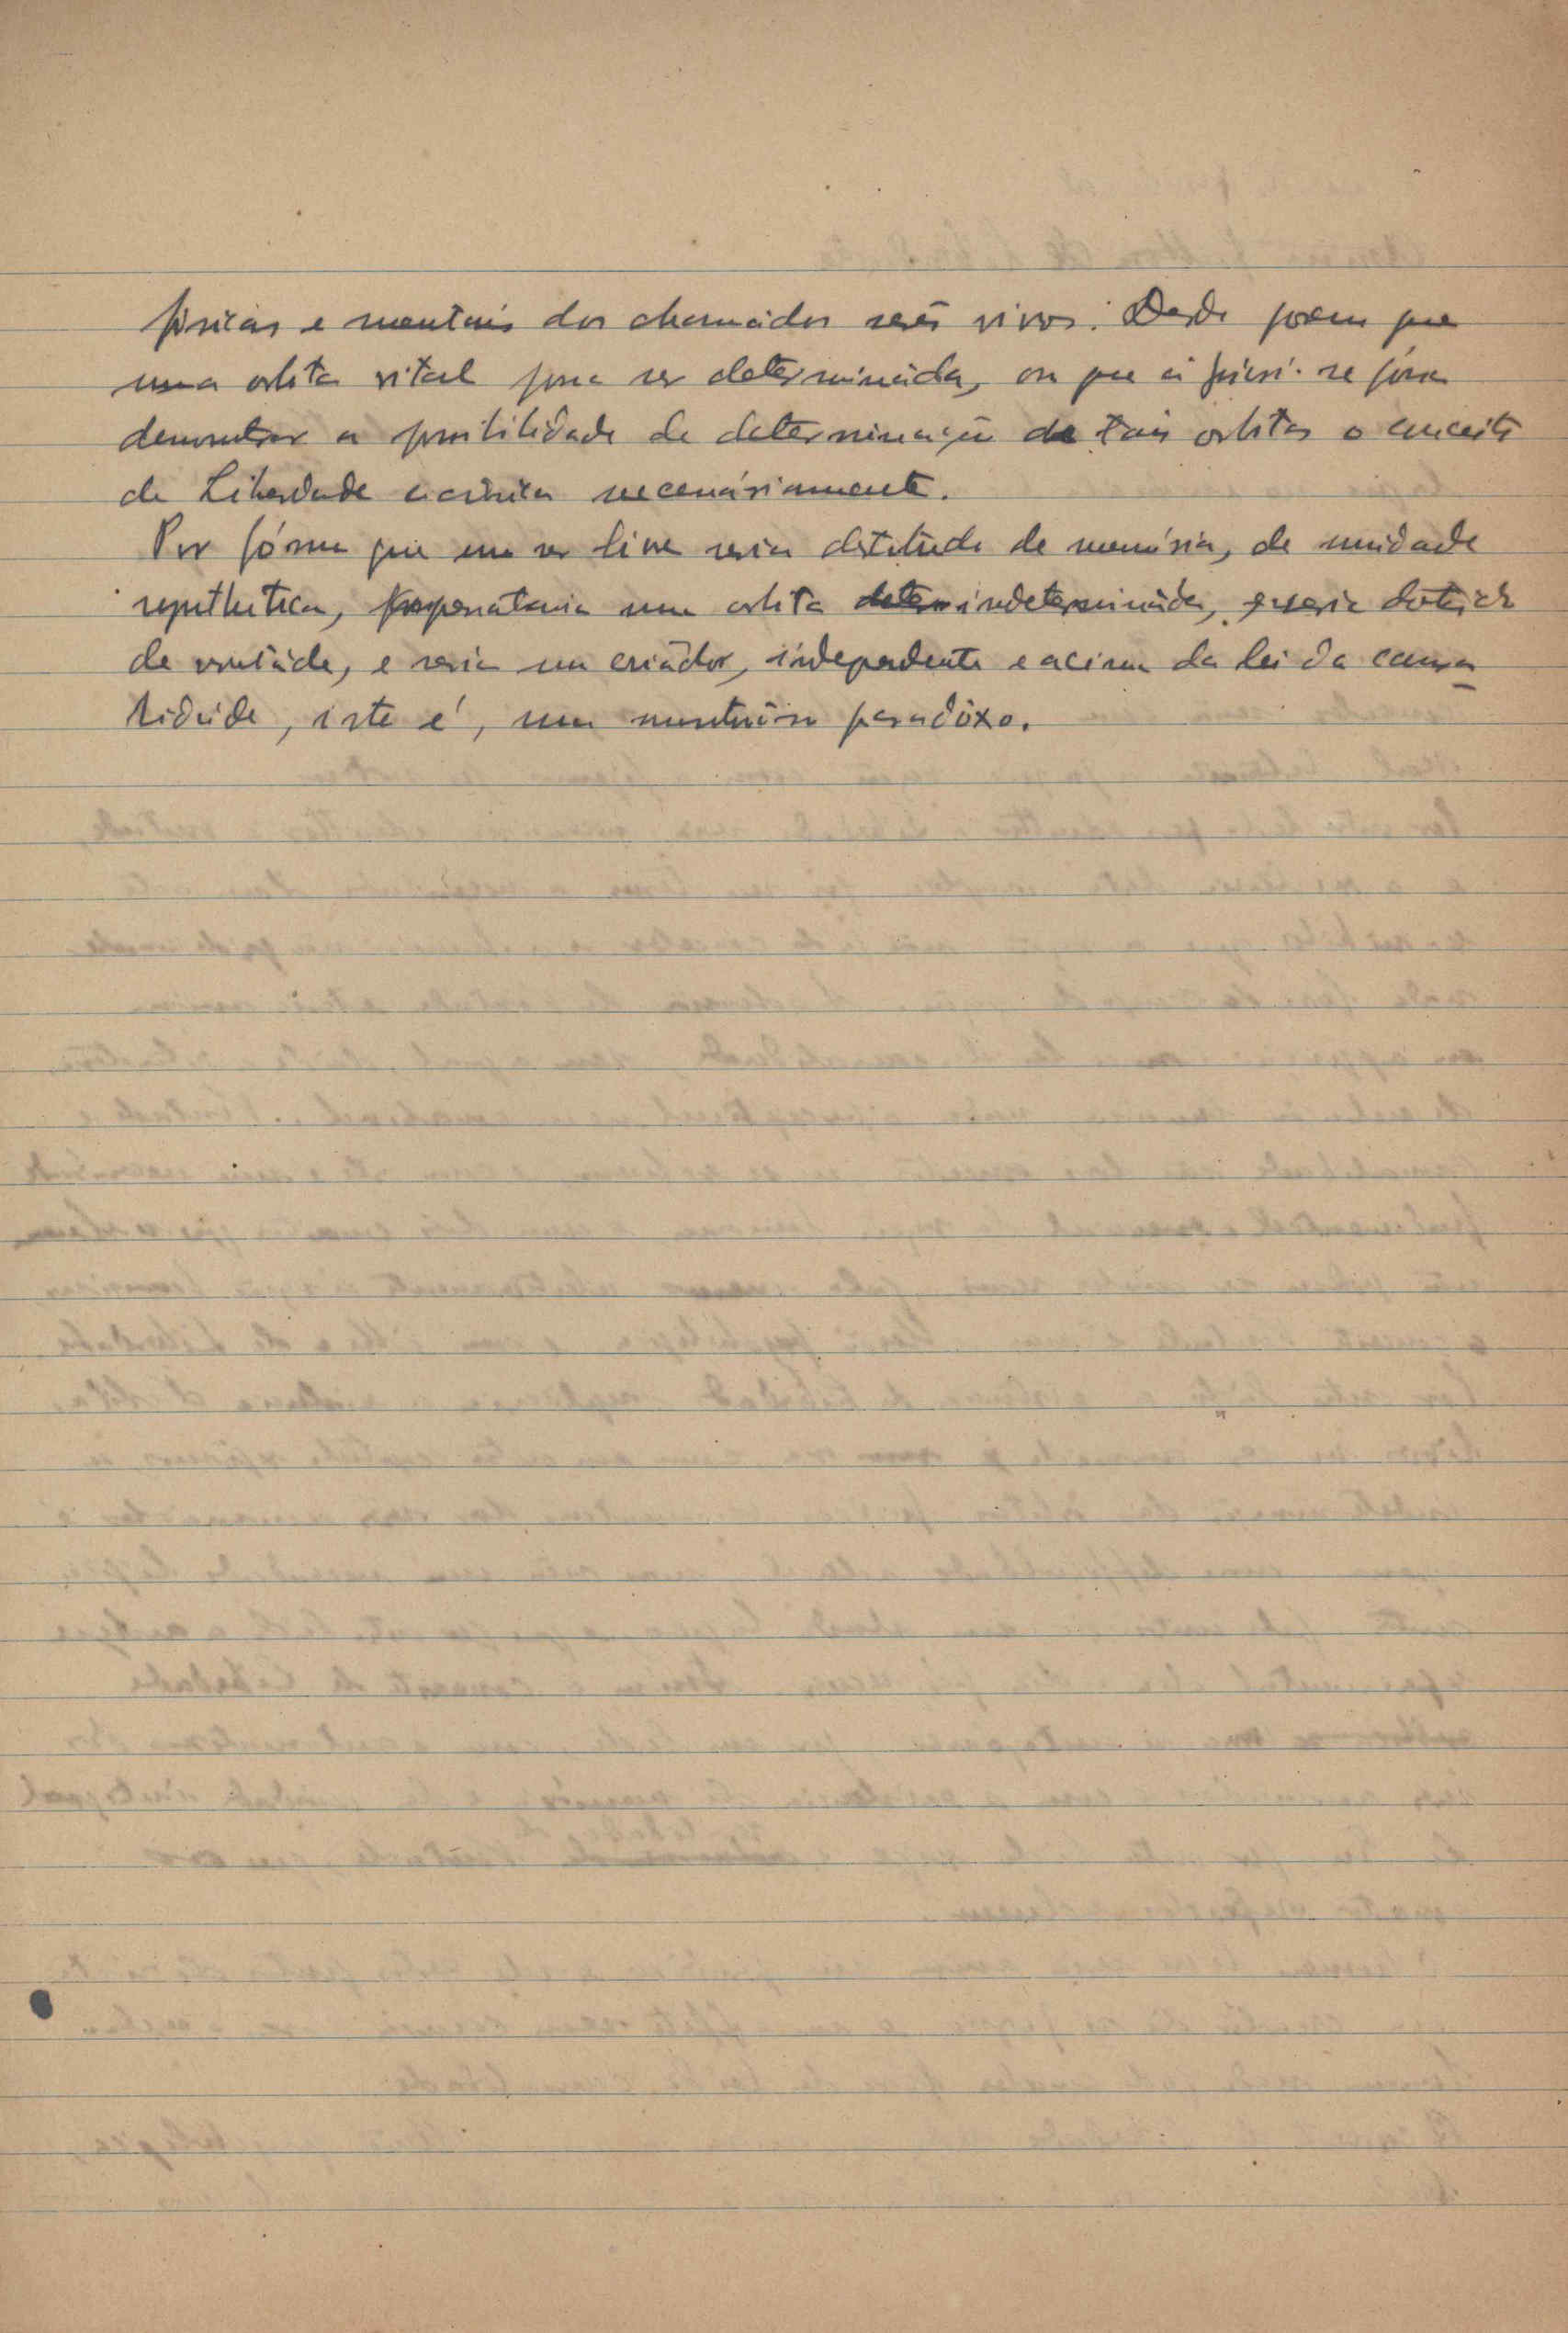 físicas e mentais dos chamados seres vivos. Desde porem que
uma orbita vital possa ser determinada, ou que á priori se possa
demonstrar a possibilidade de determinação de tais orbitas o conceito
de Liberdade necessáriamente.
Por fórma que um ser livre seria destituido de memória, de unidade
synthetica, uma orbita indeterminada, seria
de vontade, e seria um criador, independente e acima da lei da causa
lidade, isto é, um monstruoso paradoxo.